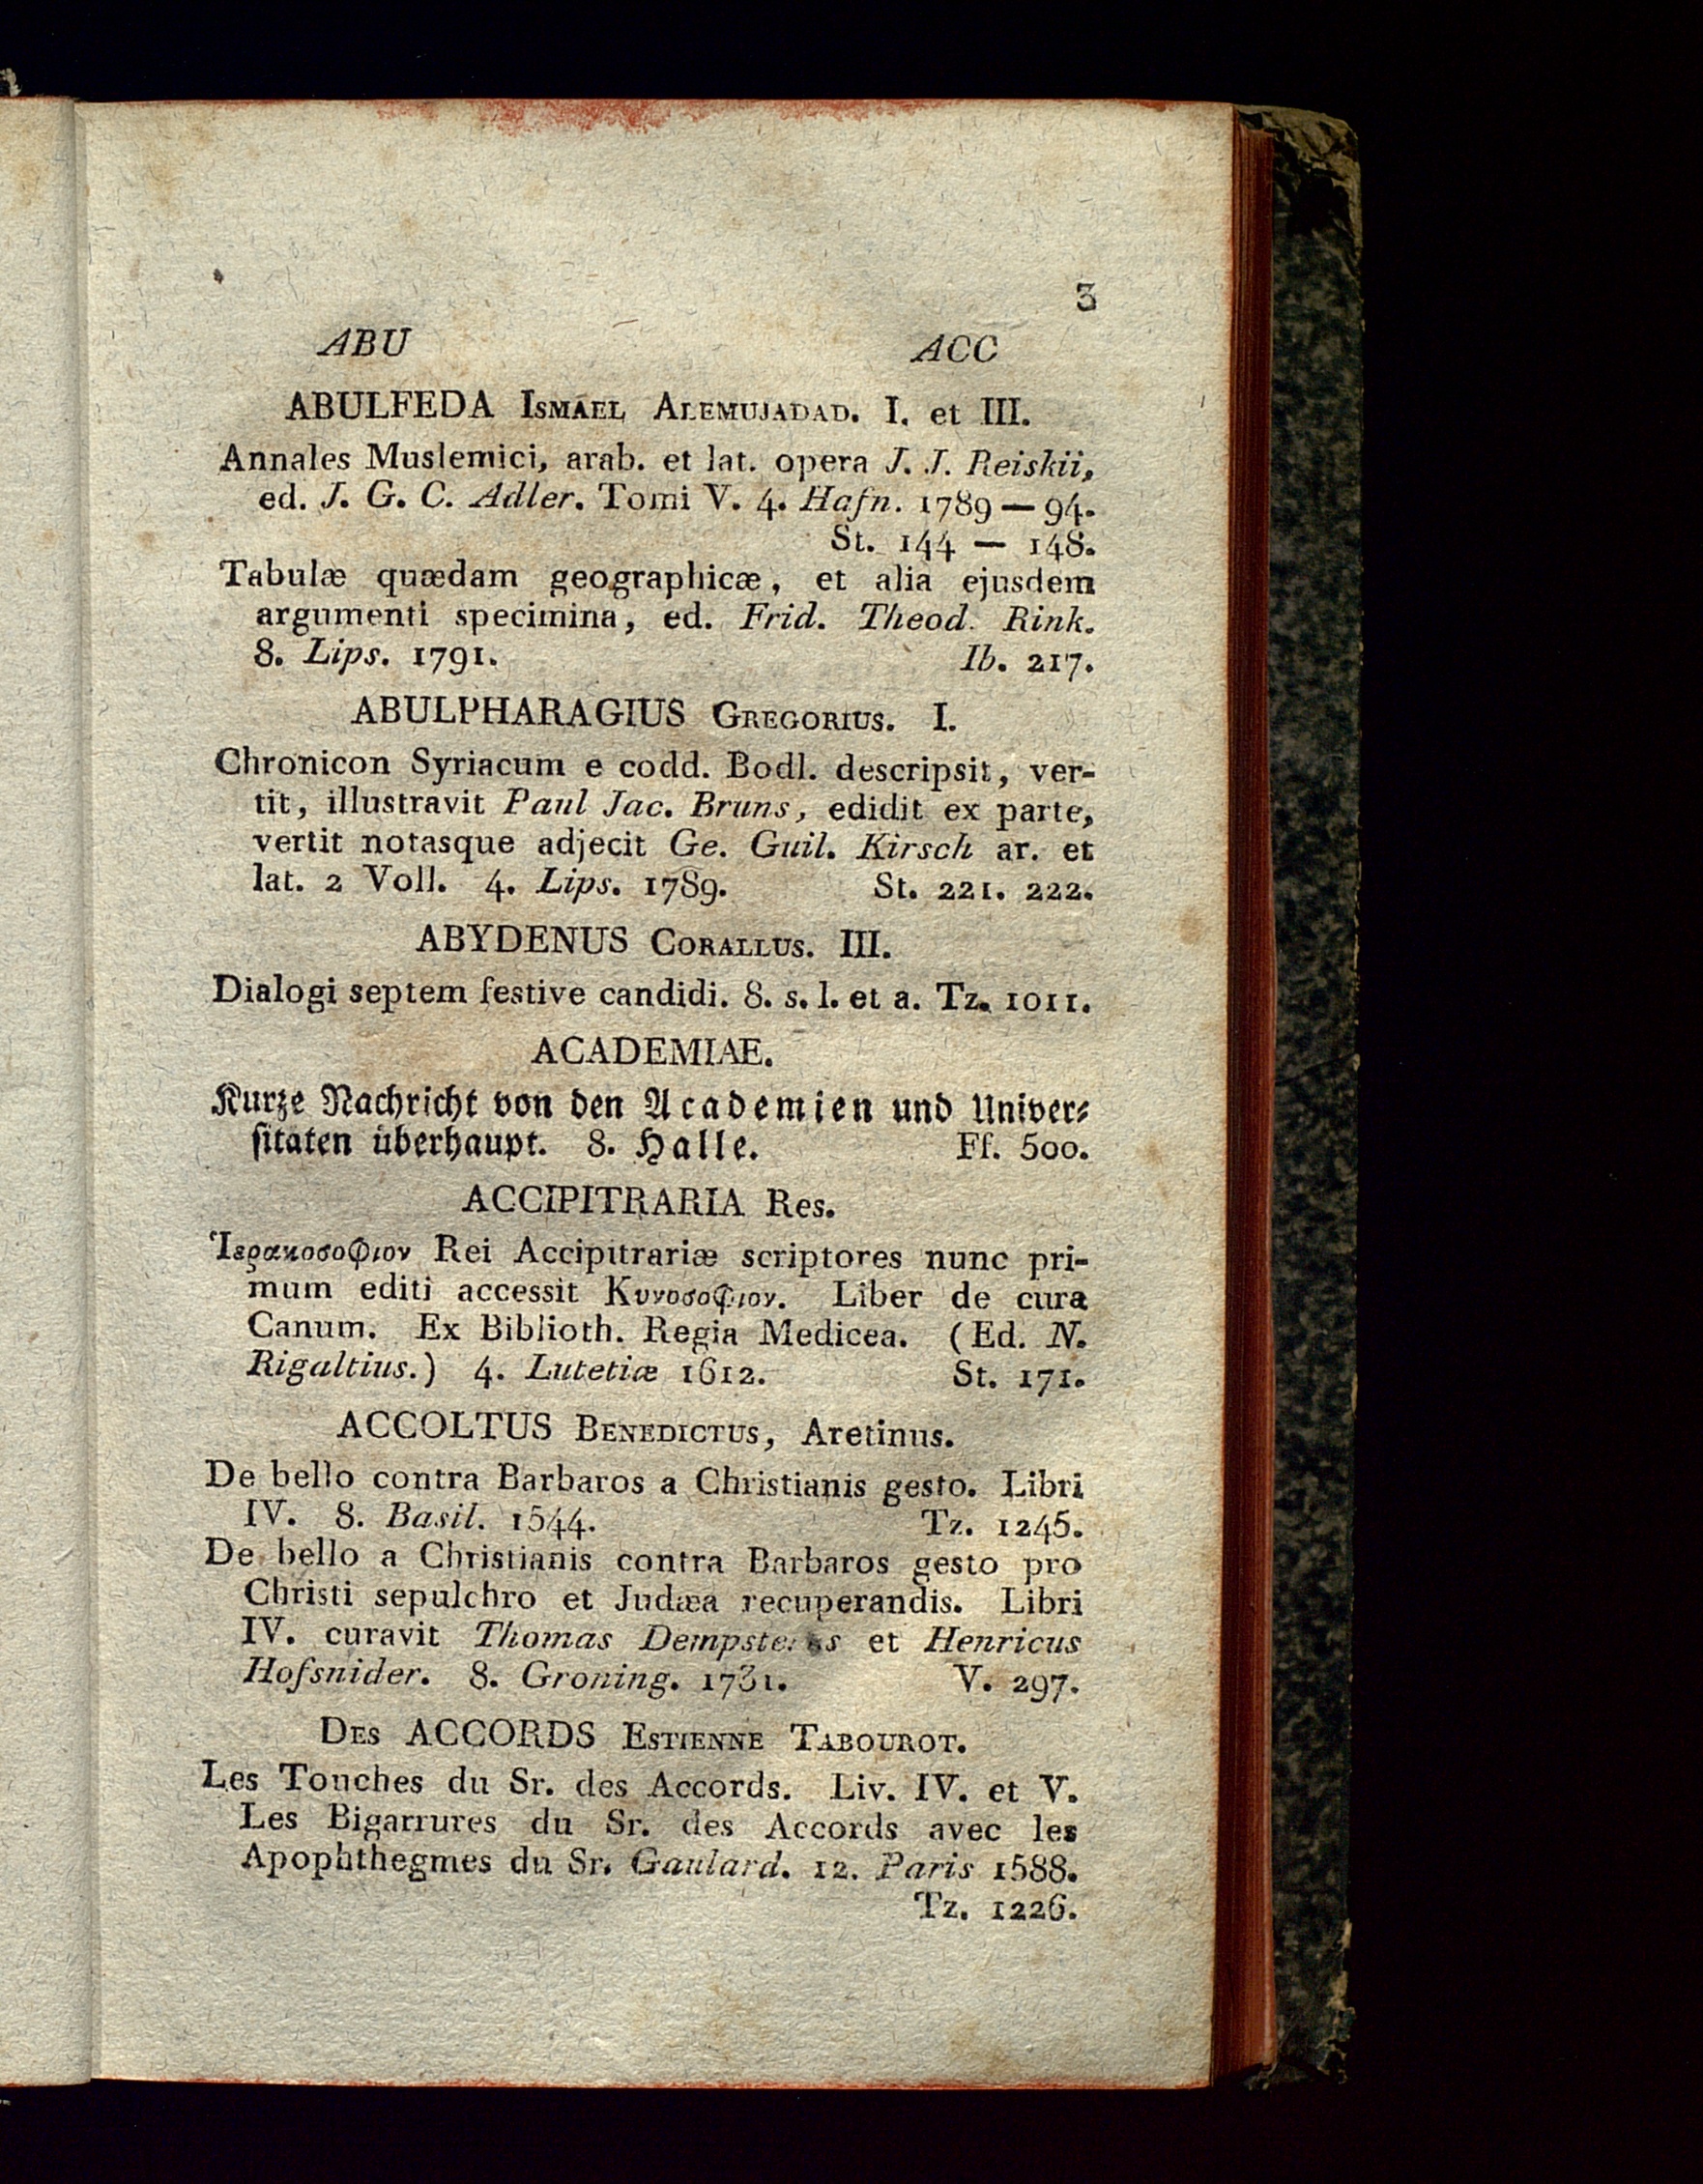 3
ABU ACC
ABULFEDA Ismael Alemujadad. I. et III.
Annales Muslemici, arab. et lat. opera J. J. Reiskii,
ed. J. G. C. Adler. Tomi V. 4. Hafn. 1789 — 94.
St. 144 — 148.
Tabulæ quædam geographicæ, et alia ejusdem
argumenti specimina, ed. Frid. Theod. Rink.
8. Lips. 1791. Ib. 217.
ABULPHARAGIUS Gregorius. I.
Chronicon Syriacum e codd. Bodl. descripsit, ver-
tit, illustravit Paul Jac. Bruns, edidit ex parte,
vertit notasque adjecit Ge. Guil. Kirsch ar. et
lat. 2 Voll. 4. Lips. 1789. St. 221. 222.
ABYDENUS Corallus. III.
Dialogi septem festive candidi. 8. s. l. et a. Tz. 1011.
ACADEMIAE.
Kurze Nachricht von den Academien und Univer-
sitäten überhaupt. 8. Halle. Ff. 500.
ACCIPITRARIA Res.
Ἱερακοσοφιον Rei Accipitrariæ scriptores nunc pri-
mum editi accessit Κυνοσοφιον. Liber de cura
Canum. Ex Biblioth. Regia Medicea. (Ed. N.
Rigaltius.) 4. Lutetiæ 1612. St. 171.
ACCOLTUS Benedictus, Aretinus.
De bello contra Barbaros a Christianis gesto. Libri
IV. 8. Basil. 1544. Tz. 1245.
De bello a Christianis contra Barbaros gesto pro
Christi sepulchro et Judæa recuperandis. Libri
IV. curavit Thomas Dempsterus et Henricus
Hofsnider. 8. Groning. 1731. V. 297.
Des ACCORDS Estienne Tabourot.
Les Touches du Sr. des Accords. Liv. IV. et V.
Les Bigarrures du Sr. des Accords avec les
Apophthegmes du Sr. Gaulard. 12. Paris 1588.
Tz. 1226.